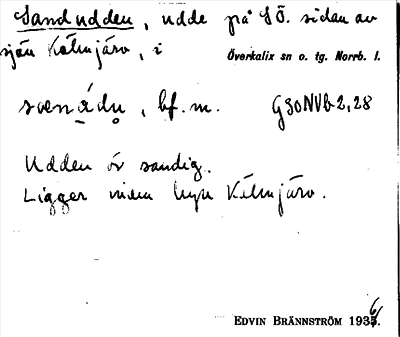 Sandudden, udde på SÖ. sidan av
sjön Kölmjärv, i Överkalix sn o. tg. Norrb. l.
bf. m. G30NVb2,28
Udden är sandig.
Ligger vid byn Kölmjärv.
EDVIN BRÄNNSTRÖM 1936.